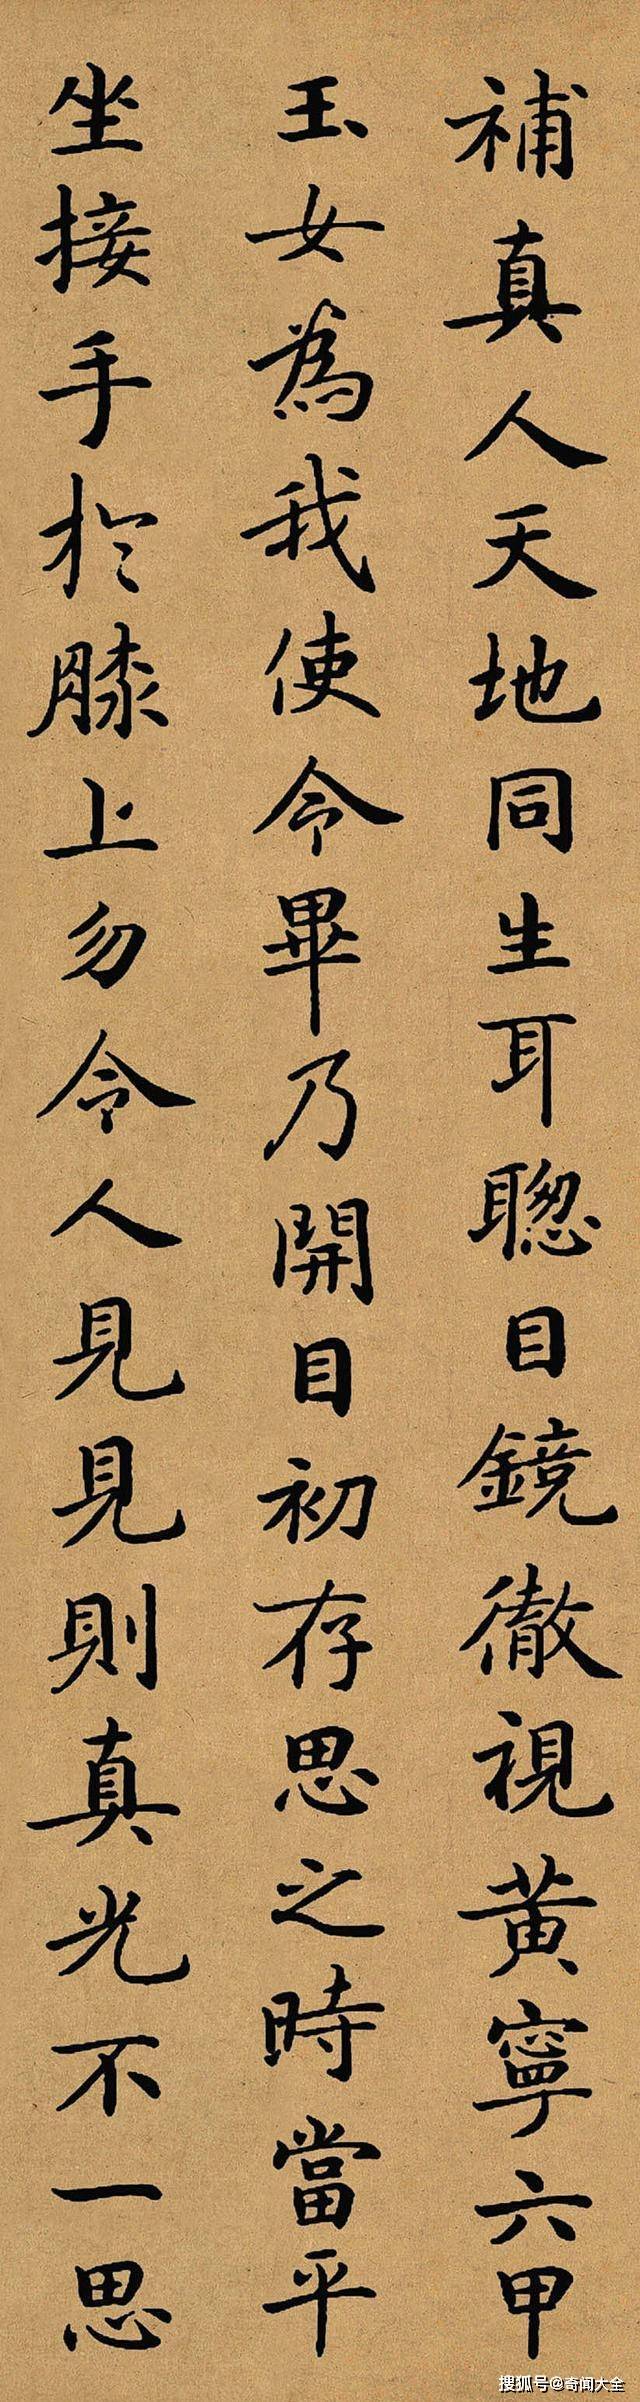 補真人天地同生耳聰目鏡徹視黄寧六甲
玉女為我使令畢乃開目初存思之時當平
坐接手於膝上勿令人見見則真光不一思
搜狐号@奇闻大全